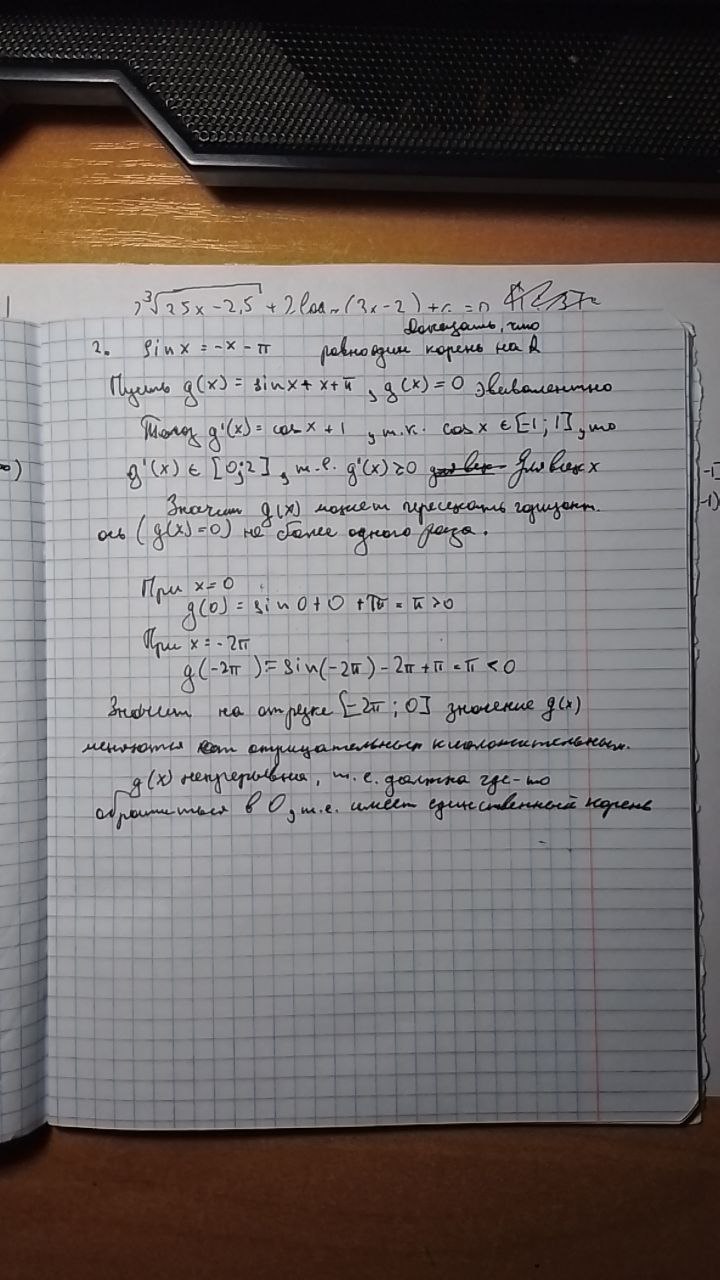 2∛25x-2,5 + 2log (3x-2) + = 0
Доказать, что
2. sin x = -x - π равно один корень на R
Пусть g(x) = sin x + x + π , g(x) = 0 эквивалентно
Тогда g'(x) = cos x + 1 , т.к. cos x ∈ [-1; 1] , то
g'(x) ∈ [0;2] , т.е. g'(x) ≥ 0 для всех x
Значит g(x) может пересекать горизонт.
ось (g(x)=0) не более одного раза.
При x=0
g(0) = sin 0 + 0 + π = π > 0
При x = -2π
g(-2π) = sin(-2π) - 2π + π = -π < 0
Значит на отрезке [-2π ; 0] значение g(x)
меняются от отрицательных к положительным.
g(x) непрерывна, т.е. должна где-то
обратиться в 0, т.е. имеет единственный корень
-1]
-1)
∞)